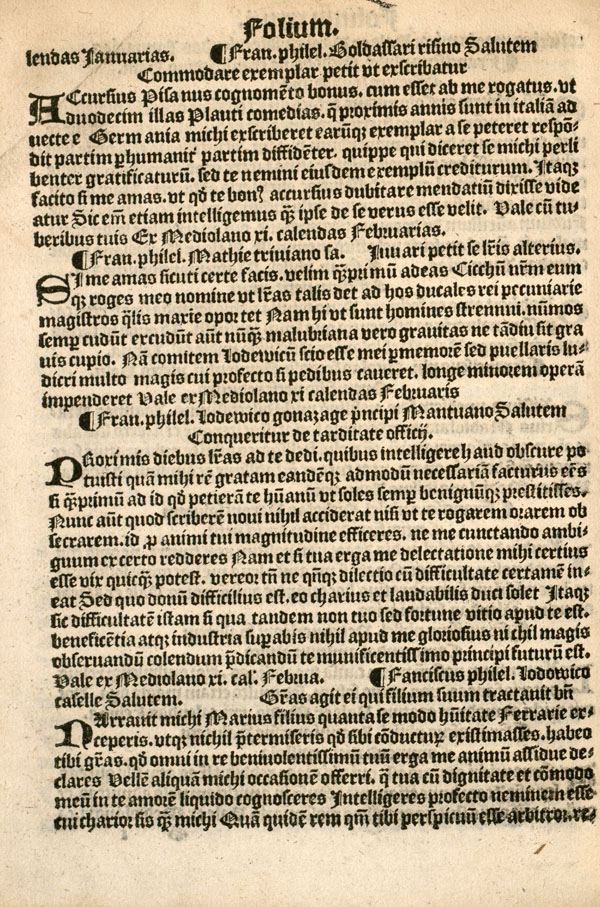 Folium.
lendas Januarias. ¶Fran. philel. Goldassari risino Salutem
Commodare exemplar petit vt exscribatur
ACcursius Pisa nus cognomēto bonus. cum esset ab me rogatus. vt
duodecim illas Plauti comedias. q̄ proximis annis sunt in italiā ad
uecte e Germania michi exscriberet earūqꝫ exemplar a se peteret respō-
dit partim ꝑhumanit̄ partim diffidēter. quippe qui diceret se michi perli
benter gratificaturū. sed te nemini eiusdem exemplū crediturum. Itaqꝫ
facito si me amas. vt qd̄ te bonꝰ accursius dubitare mendatiū dixisse vide
atur Sic em̄ etiam intelligemus qꝫ̄ ipse de se verus esse velit. Vale cū tu-
beribus tuis Ex Mediolano xi. calendas Februarias.
¶Fran. philel. Mathie triuiano sa. Iuuari petit se lr̄is alterius.
SI me amas sicuti certe facis. velim qꝫ̄primū adeas Cicchū nr̄m eum
qꝫ roges meo nomine vt lr̄as talis det ad hos ducales rei pecuniarie
magistros q̄lis marie opor tet Nam hi vt sunt homines strennui. nūmos
semꝑ cudūt excudūt aūt nūqꝫ̄ malubriana vero grauitas ne tādiu sit gra
uis cupio. Nā comitem Lodewicū scio esse mei ꝑmemorē sed puellaris lu-
dicri multo magis cui profecto si pedibus caueret. longe minorem operā
impenderet Vale ex Mediolano xi calendas Februaris
¶Fran. philel. Lodewico gonazage pn̄cipi Mantuano Salutem
Conqueritur de tarditate officij.
PRoximis diebus lr̄as ad te dedi. quibus intelligere haud obscure po
tuisti quā mihi rē gratam eandēqꝫ admodū necessariā facturus eēs
si qꝫ̄primū ad id qd̄ petierā te hūanū vt soles semꝑ benignūqꝫ prestitisses.
Nunc aūt quod scriberē noui nihil acciderat nisi vt te rogarem orarem ob
secrarem. id ꝓ animi tui magnitudine efficeres. ne me cunctando ambi-
guum ex certo redderes Nam et si tua erga me delectatione mihi certius
esse vix quicqꝫ̄ potest. vereor tn̄ ne qn̄qꝫ dilectio cū difficultate certamē in-
eat Sed quo donū difficilius est. eo charius et laudabilis duci solet Itaqꝫ
sic difficultatē istam si qua tandem non tuo sed fortune vitio apud te est.
beneficētia atqꝫ industria suꝑabis nihil apud me gloriosius ni chil magis
obseruandū colendum p̄dicandū te munificentissimo principi futurū est.
Vale ex Mediolano xi. cal. Februa. ¶Franciscus philel. Lodowico
caselle Salutem. Gr̄as agit ei qui filium suum tractauit bn̄
NArrauit michi Marius filius quanta se modo hūitate Ferrarie ex-
ceperis. vtqꝫ nichil p̄termiseris qd̄ sibi cōducturꝫ existimasses. habeo
tibi gr̄as. qd̄ omni in re beniuolentissimū tuū erga me animū assidue de-
clares Vellē aliquā michi occasionē offerri. q̄ tua cū dignitate et cōmodo
meū in te amorē liquido cognosceres Intelligeres profecto neminem esse
cui charior sis qꝫ̄ michi Quā quidē rem qm̄ tibi perspicuū esse arbitror. re-